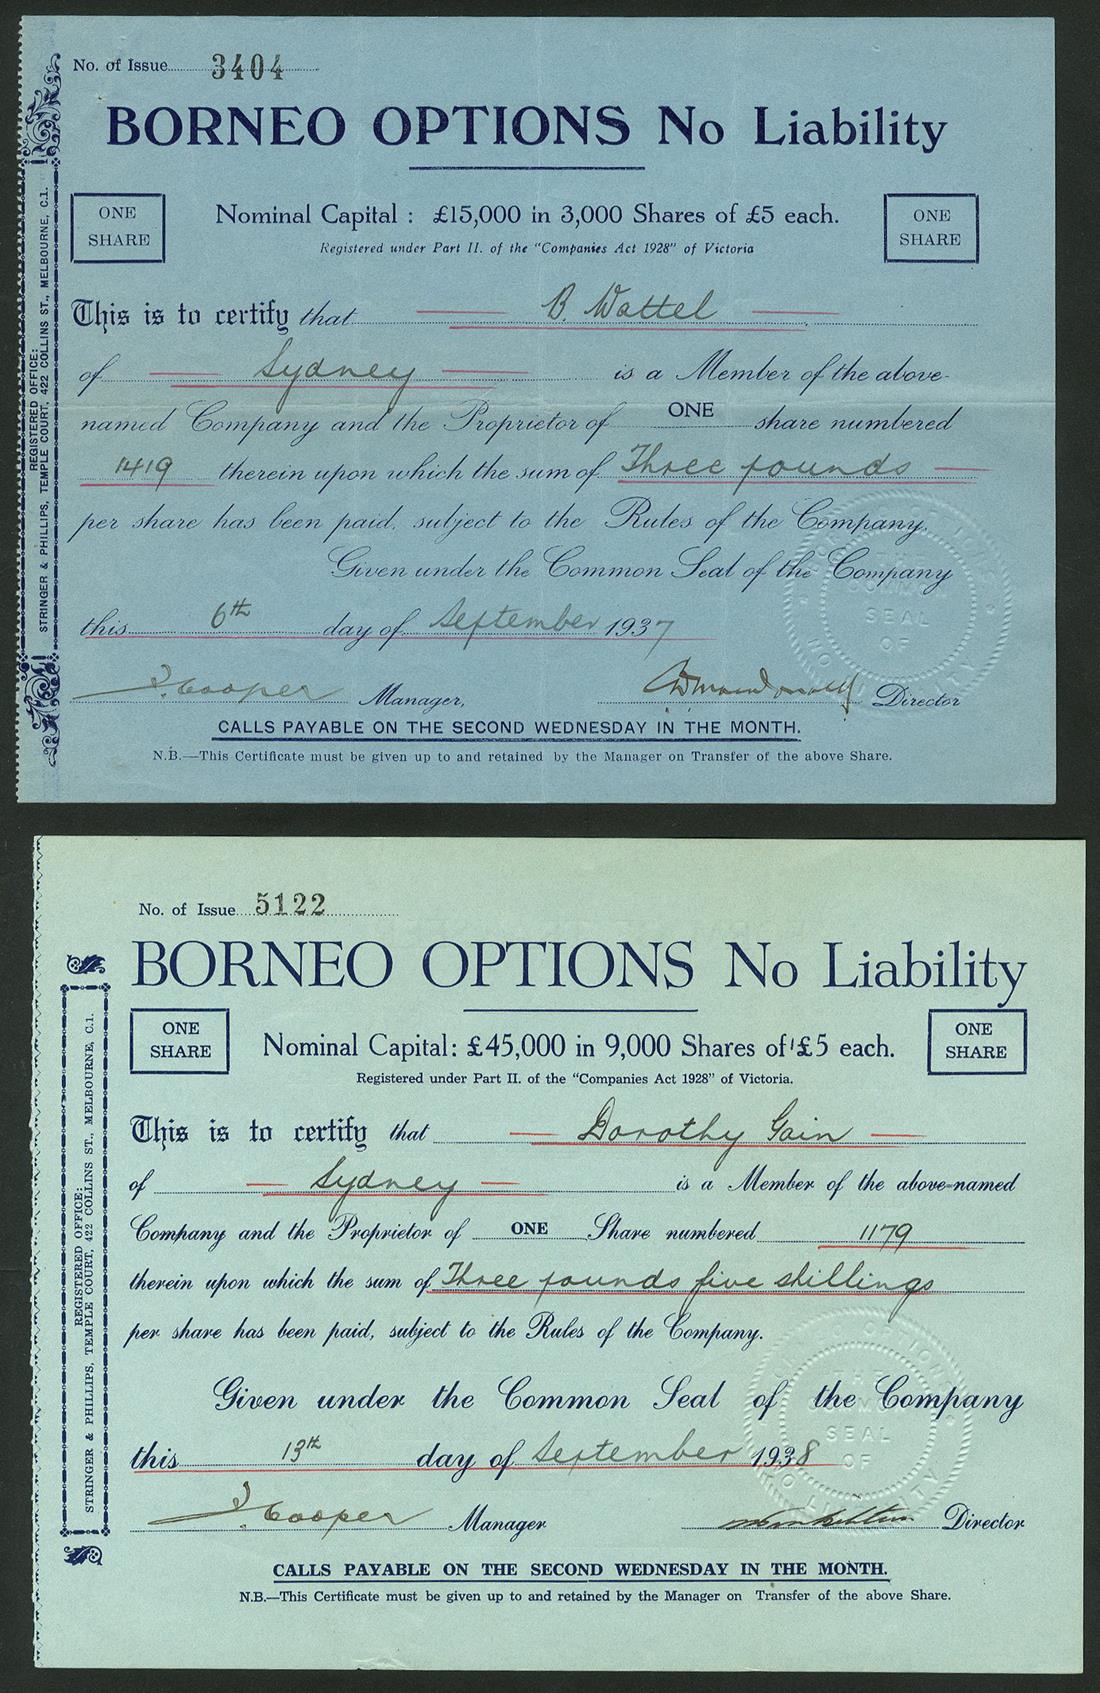 No. of Issue 3404
BORNEO OPTIONS No Liability
ONE SHARE
Nominal Capital : £15,000 in 3,000 Shares of £5 each.
ONE SHARE
Registered under Part II. of the "Companies Act 1928" of Victoria
This is to certify that B. Wattel
of Sydney is a Member of the above-
named Company and the Proprietor of ONE share numbered
1419 therein upon which the sum of Three pounds
per share has been paid, subject to the Rules of the Company.
Given under the Common Seal of the Company
this 6th day of September 1937
J. Cooper Manager, Director
CALLS PAYABLE ON THE SECOND WEDNESDAY IN THE MONTH.
N.B.—This Certificate must be given up to and retained by the Manager on Transfer of the above Share.
REGISTERED OFFICE:
STRINGER & PHILLIPS, TEMPLE COURT, 422 COLLINS ST., MELBOURNE, C.1.
COMMON
SEAL
OF
No. of Issue 5122
BORNEO OPTIONS No Liability
ONE SHARE
Nominal Capital: £45,000 in 9,000 Shares of £5 each.
ONE SHARE
Registered under Part II. of the "Companies Act 1928" of Victoria.
This is to certify that Dorothy Gain
of Sydney is a Member of the above-named
Company and the Proprietor of ONE Share numbered 1179
therein upon which the sum of Three pounds five shillings
per share has been paid, subject to the Rules of the Company.
Given under the Common Seal of the Company
this 13th day of September 1938
J. Cooper Manager Director
CALLS PAYABLE ON THE SECOND WEDNESDAY IN THE MONTH.
N.B.—This Certificate must be given up to and retained by the Manager on Transfer of the above Share.
REGISTERED OFFICE:
STRINGER & PHILLIPS, TEMPLE COURT, 422 COLLINS ST., MELBOURNE, C.1.
COMMON
SEAL
OF